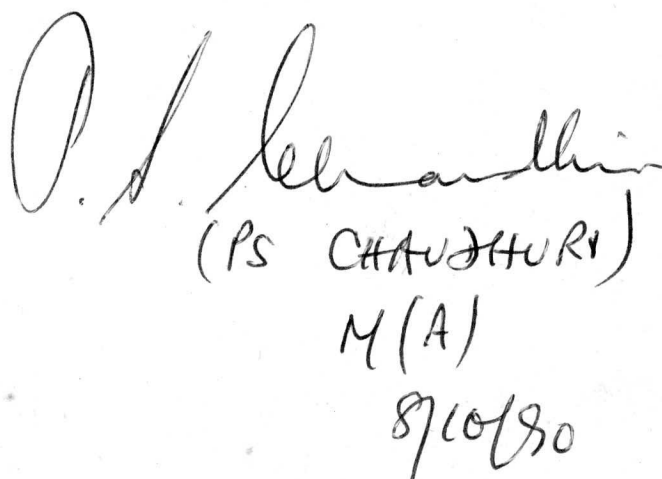 P. S. Chaudhuri
(PS CHAUDHURY)
M(A)
8/10/90